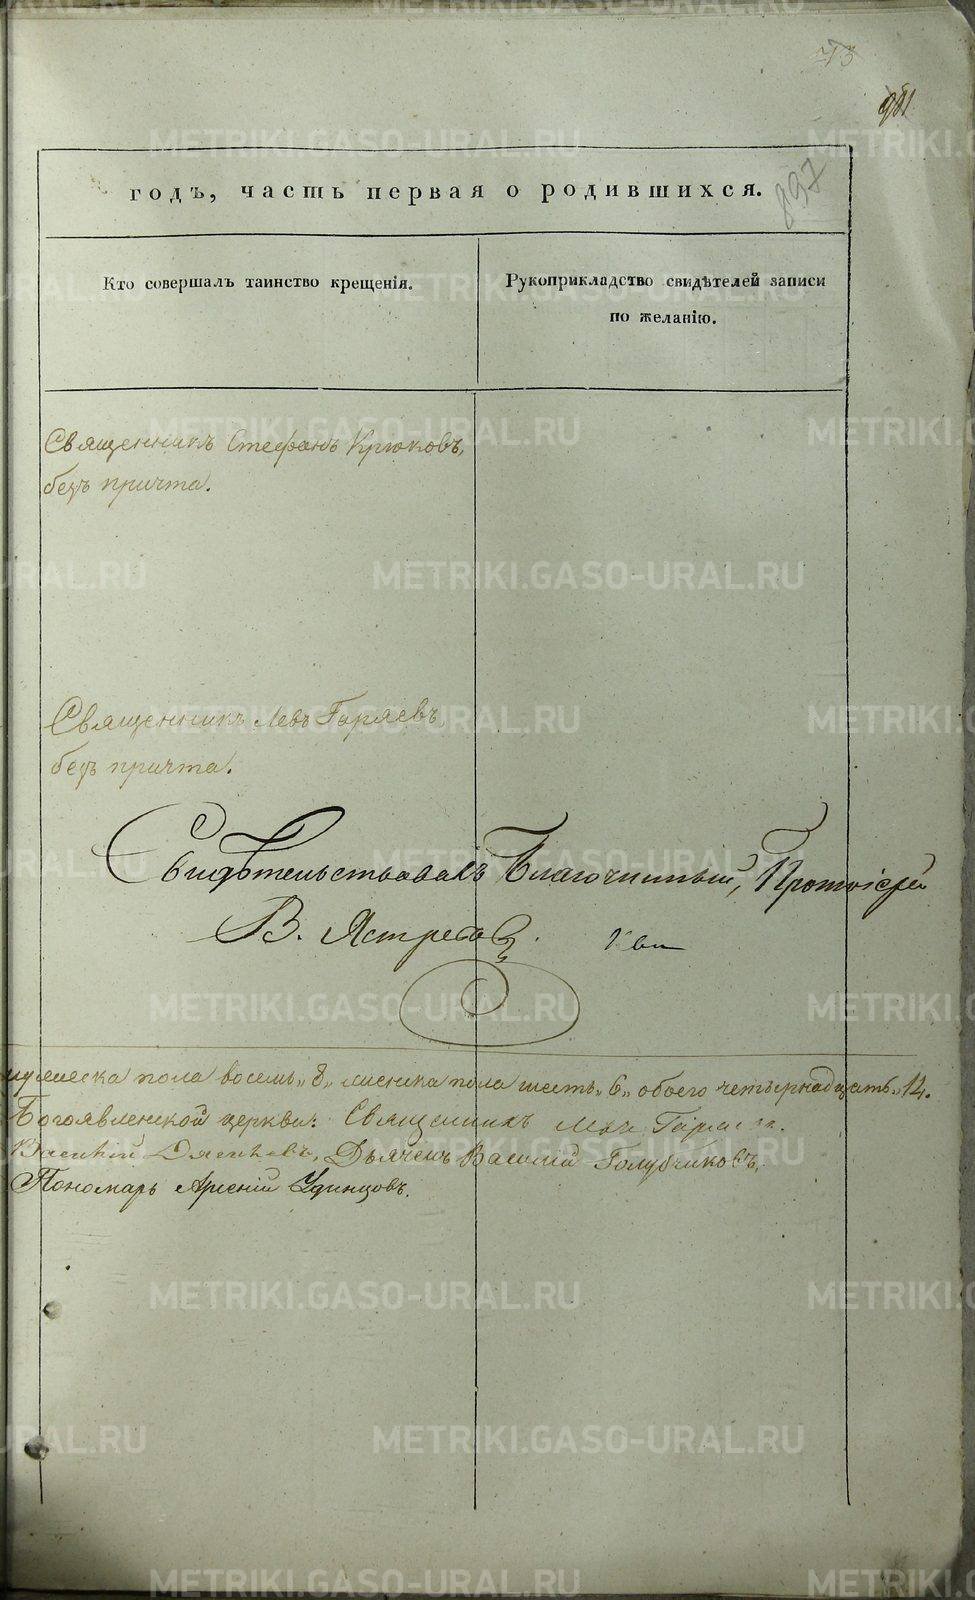 73
897
годъ, часть первая о родившихся.
Кто совершалъ таинство крещенія.
Рукоприкладство свидѣтелей записи
по желанію.
Священникъ Стефанъ Крюковъ,
безъ причта.
Священникъ Левъ Гаряевъ,
безъ причта.
Свидѣтельствовалъ Благочинный, Протоіерей
В. Ястребовъ.
мужеска пола восемь „8„ женска пола шесть „6„ обоего четырнадцать „14.
Богоявленской церкви: Священникъ Левъ Гаряевъ.
Василій Дьячекъ Василій Голубчиковъ,
Пономарь Арсеній Удинцовъ.
METRIKI.GASO-URAL.RU